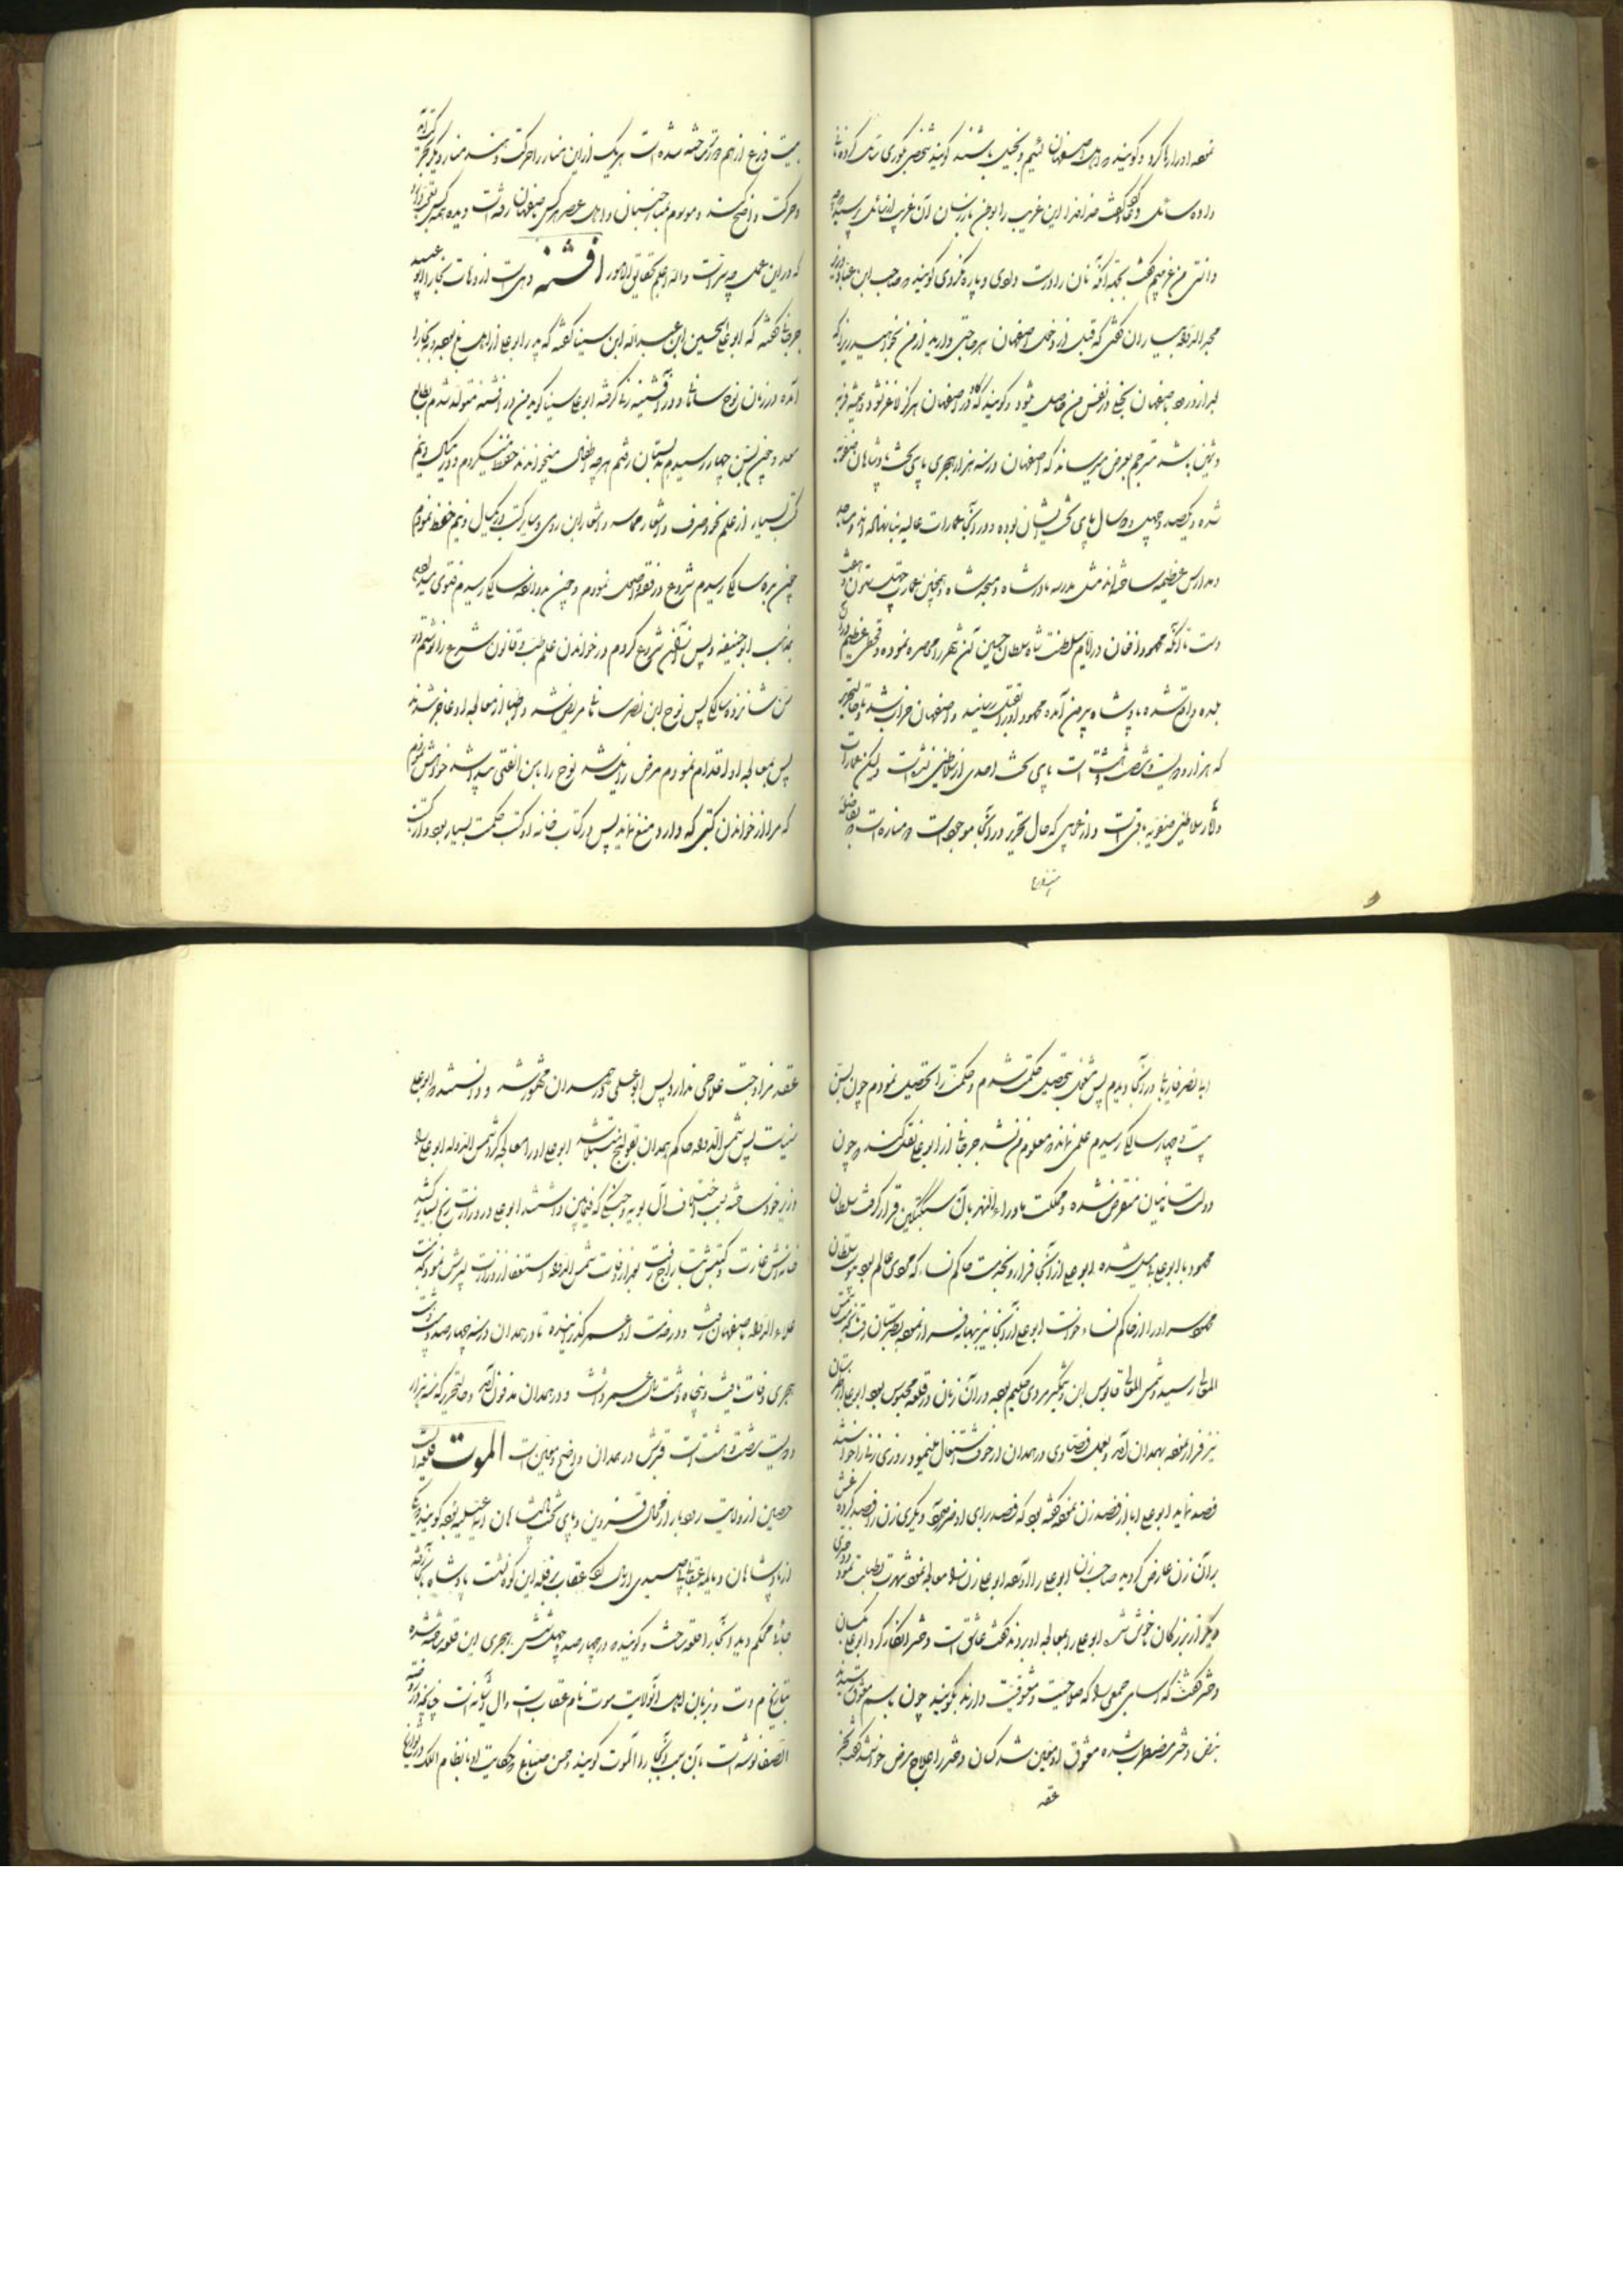 نموده او را رها کرد و گویند که اهل اصفهان لئیم و بخیل باشند گویند شخصی بکوری نان کرده
داده سائل دعا گفت خدا این غریب را بوطن باز رسان آن غریب از سائل پرسید
دانستی من غریبم گفت بجهة آنکه نان را درست دادی و پاره نکردی گویند صاحب ابن عباد وزیر
مجد الدوله بیاران گفتی که قبل از دخول اصفهان هر حاجتی دارید از من بخواهید زیرا که
بعد از ورود باصفهان بخلی در نفس من حاصل میشود و گویند که گاو در اصفهان هرگز لاغر نشود و همیشه فربه
باشد مترجم بعرض میرساند که اصفهان در سنه هزار هجری پای تخت پادشاهان صفویه
شده و یکصد و چهل و دو سال پای تخت ایشان بوده و در آنجا عمارات عالیه بنا نهاده اند و مساجد
و مدارس عظیمه ساخته اند مثل مدرسه مادر شاه و مسجد شاه و همچنین عمارت چهل ستون و هشت
تا آنکه محمود افغان در ایام سلطنت شاه سلطان حسین آن شهر را محاصره نموده و قحطی عظیم در آن
بلده واقع شده پادشاه بیرون آمده محمود او را بقتل رسانید و اصفهان خراب شد تا حال تحریر
که هزار و دویست و شصت و هشت است پای تخت احدی از سلاطین نشده است ولیکن عمارات
و آثار سلاطین صفویه باقی است و از غرایبی که حال تحریر در آنجا موجود است دو مناره است بفاصله
بیست ذرع از هم دور ساخته شده است هر یک از این منار را حرکت دهند منار دیگر بحرکت آید
و حرکت واضح کند و موسوم بمنار جنبان و اهل عصر هر کس باصفهان رفته است دیده
که در این عمل چه سر است والله اعلم بحقایق الامور افشنه دهی است از دهات بخارا ابو عبید
جرجانی گفته که ابو علی الحسین ابن عبد الله ابن سینا گفته که پدر ابو علی از اهل بلخ بوده و به بخارا
آمده در زمان نوح سامانی و در افشنه زن گرفته ابو علی سینا گوید من در افشنه متولد شدم بطالع
و چون بسن چهار رسیدم بدبستان رفتم هر چه اطفال میخواندند حفظ میکردم و در یکسال و نیم
کتب بسیار از علم نحو و صرف و اشعار حماسه و اشعار ابن رومی و سایر کتب در یکسال و نیم حفظ نمودم
چون بده سالگی رسیدم شروع در فقه و اصول نمودم و چون بدوازده سالگی رسیدم فتوی میدادم
بمذهب ابو حنیفه و پس از آن شروع کردم در خواندن علم طب و قانون شروع را نوشتم در
سن شانزده سالگی پس نوح ابن نصر سامانی مریض شد و اطبا از معالجه او عاجز شدند
پس بمعالجه او اقدام نمودم مرض زایل شد نوح را با من الفتی پیدا شد خواهش نمودم
که مرا از خواندن کتبی که دارد منع ننماید پس در کتاب خانه او کتب حکمت بسیار بود و از کتب
ابا نصر فارابی در آنجا دیدم پس مشغول بتحصیل حکمت شدم و حکمت را تحصیل نمودم چون بسن
بیست و چهار سالگی رسیدم علمی نماند که معلوم من نشد جرجانی از ابو علی نقل کند که چون
دولت سامانیان منقرض شده و مملکت ماوراء النهر بآل سبکتکین قرار گرفت سلطان
محمود با ابو علی بی میل شده ابو علی از آنجا فرار و بخدمت حاکم نساء که مردی عالم بود پیوست سلطان
محمود او را از حاکم نساء خواست ابو علی از آنجا نیز پنهانی فرار نموده بطبرستان رفته بخدمت شمس
المعالی رسید و شمس المعالی قابوس ابن وشمگیر مردی حکیم بوده در آن زمان در قلعه محبوس بود ابو علی از طبرستان
نیز فرار نموده بهمدان آمد و بعمل فصادی در همدان از خوف اشتغال مینمود روزی زنی را خواستند
فصد نماید ابو علی ابا از فصد زن نموده گفته بود که فصد برای او ضرر دارد دیگری زن را فصد کرده غش
بر آن زن عارض گردید صاحب زن ابو علی را آورده ابو علی زن را معالجه نموده شهرت بطبابت نمود
دیگر از بزرگان ناخوش شد ابو علی را بمعالجه او بردند گفت عاشق است دختر انکار کرد ابو علی بکسان
دختر گفت که اسامی جمعی را که صلاحیت معشوقیت دارند بگویند چون باسم معشوق رسیدند
نبض دختر مضطرب شده معشوق او معین شد کسان دختر را علاج مرض خواستند گفت بجز
عقد
عقد مزاوجت علاجی ندارد پس ابو علی در همدان مشهور شد و دانستند که ابو علی
سیناست پس شمس الدوله حاکم همدان بقولنج مبتلا شد ابو علی او را معالجه کرد شمس الدوله ابو علی را
وزیر خود ساخته بسبب اختلاف آل بویه و جنگی که فیمابین داشتند ابو علی در وزارت رنج بسیار کشید
خانه اش غارت و کتبش بتاراج رفت بعد از وفات شمس الدوله استعفا از وزارت پسرش نمود بخدمت
علاء الدوله باصفهان رفت و در خدمت او عمر گذرانیده تا در همدان در سنه چهار صد و بیست و هشت
هجری وفات یافت و پنجاه و هشت سال عمر داشت و در همدان مدفون آمد و حال تحریر که سنه هزار
و دویست و شصت و هشت است قبرش در همدان واضح و معین است الموت قلعه است
حصین از ولایت رودبار از محال قزوین و پای تخت پادشاهان اسماعیلیه بوده گویند یکی
از پادشاهان دیالمه عقابی بصید از اینجا عقاب بر قله این کوه نشست پادشاه
جای محکم دید آنجا را قلعه ساخت و گویند در چهار صد و چهل و شش هجری این قلعه ساخته شده
بتاریخ و بزبان اهل آنولایت موت نام عقاب است و ال آشیانه است چنانچه در روضة
الصفا نوشته است بآن سبب آنجا را الموت گویند و حسن صباح و حکایت او با نظام الملک در تواریخ